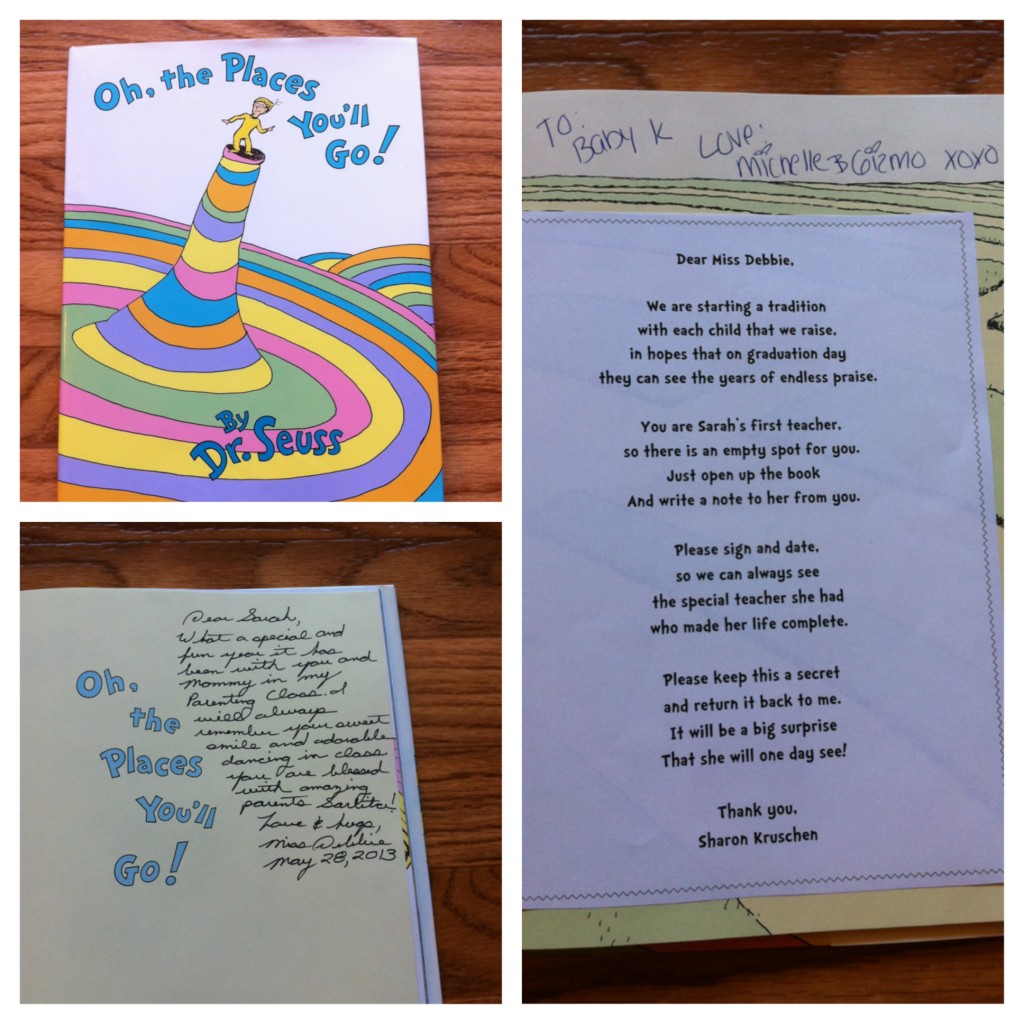 Oh, the Places
You'll
Go!
By
Dr. Seuss
Dear Sarah,
What a special and
fun year it has
been with you and
Mommy in my
Parenting Class. I
will always
remember your sweet
smile and adorable
dancing in class
you are blessed
with amazing
parents Sarlitta!
Love & hugs,
Miss Debbie
May 28, 2013
Oh,
the
Places
You'll
Go!
TO: Baby K Love:
Michelle & Gizmo xoxo
Dear Miss Debbie,
We are starting a tradition
with each child that we raise,
in hopes that on graduation day
they can see the years of endless praise.
You are Sarah's first teacher,
so there is an empty spot for you.
Just open up the book
And write a note to her from you.
Please sign and date,
so we can always see
the special teacher she had
who made her life complete.
Please keep this a secret
and return it back to me.
It will be a big surprise
That she will one day see!
Thank you,
Sharon Kruschen